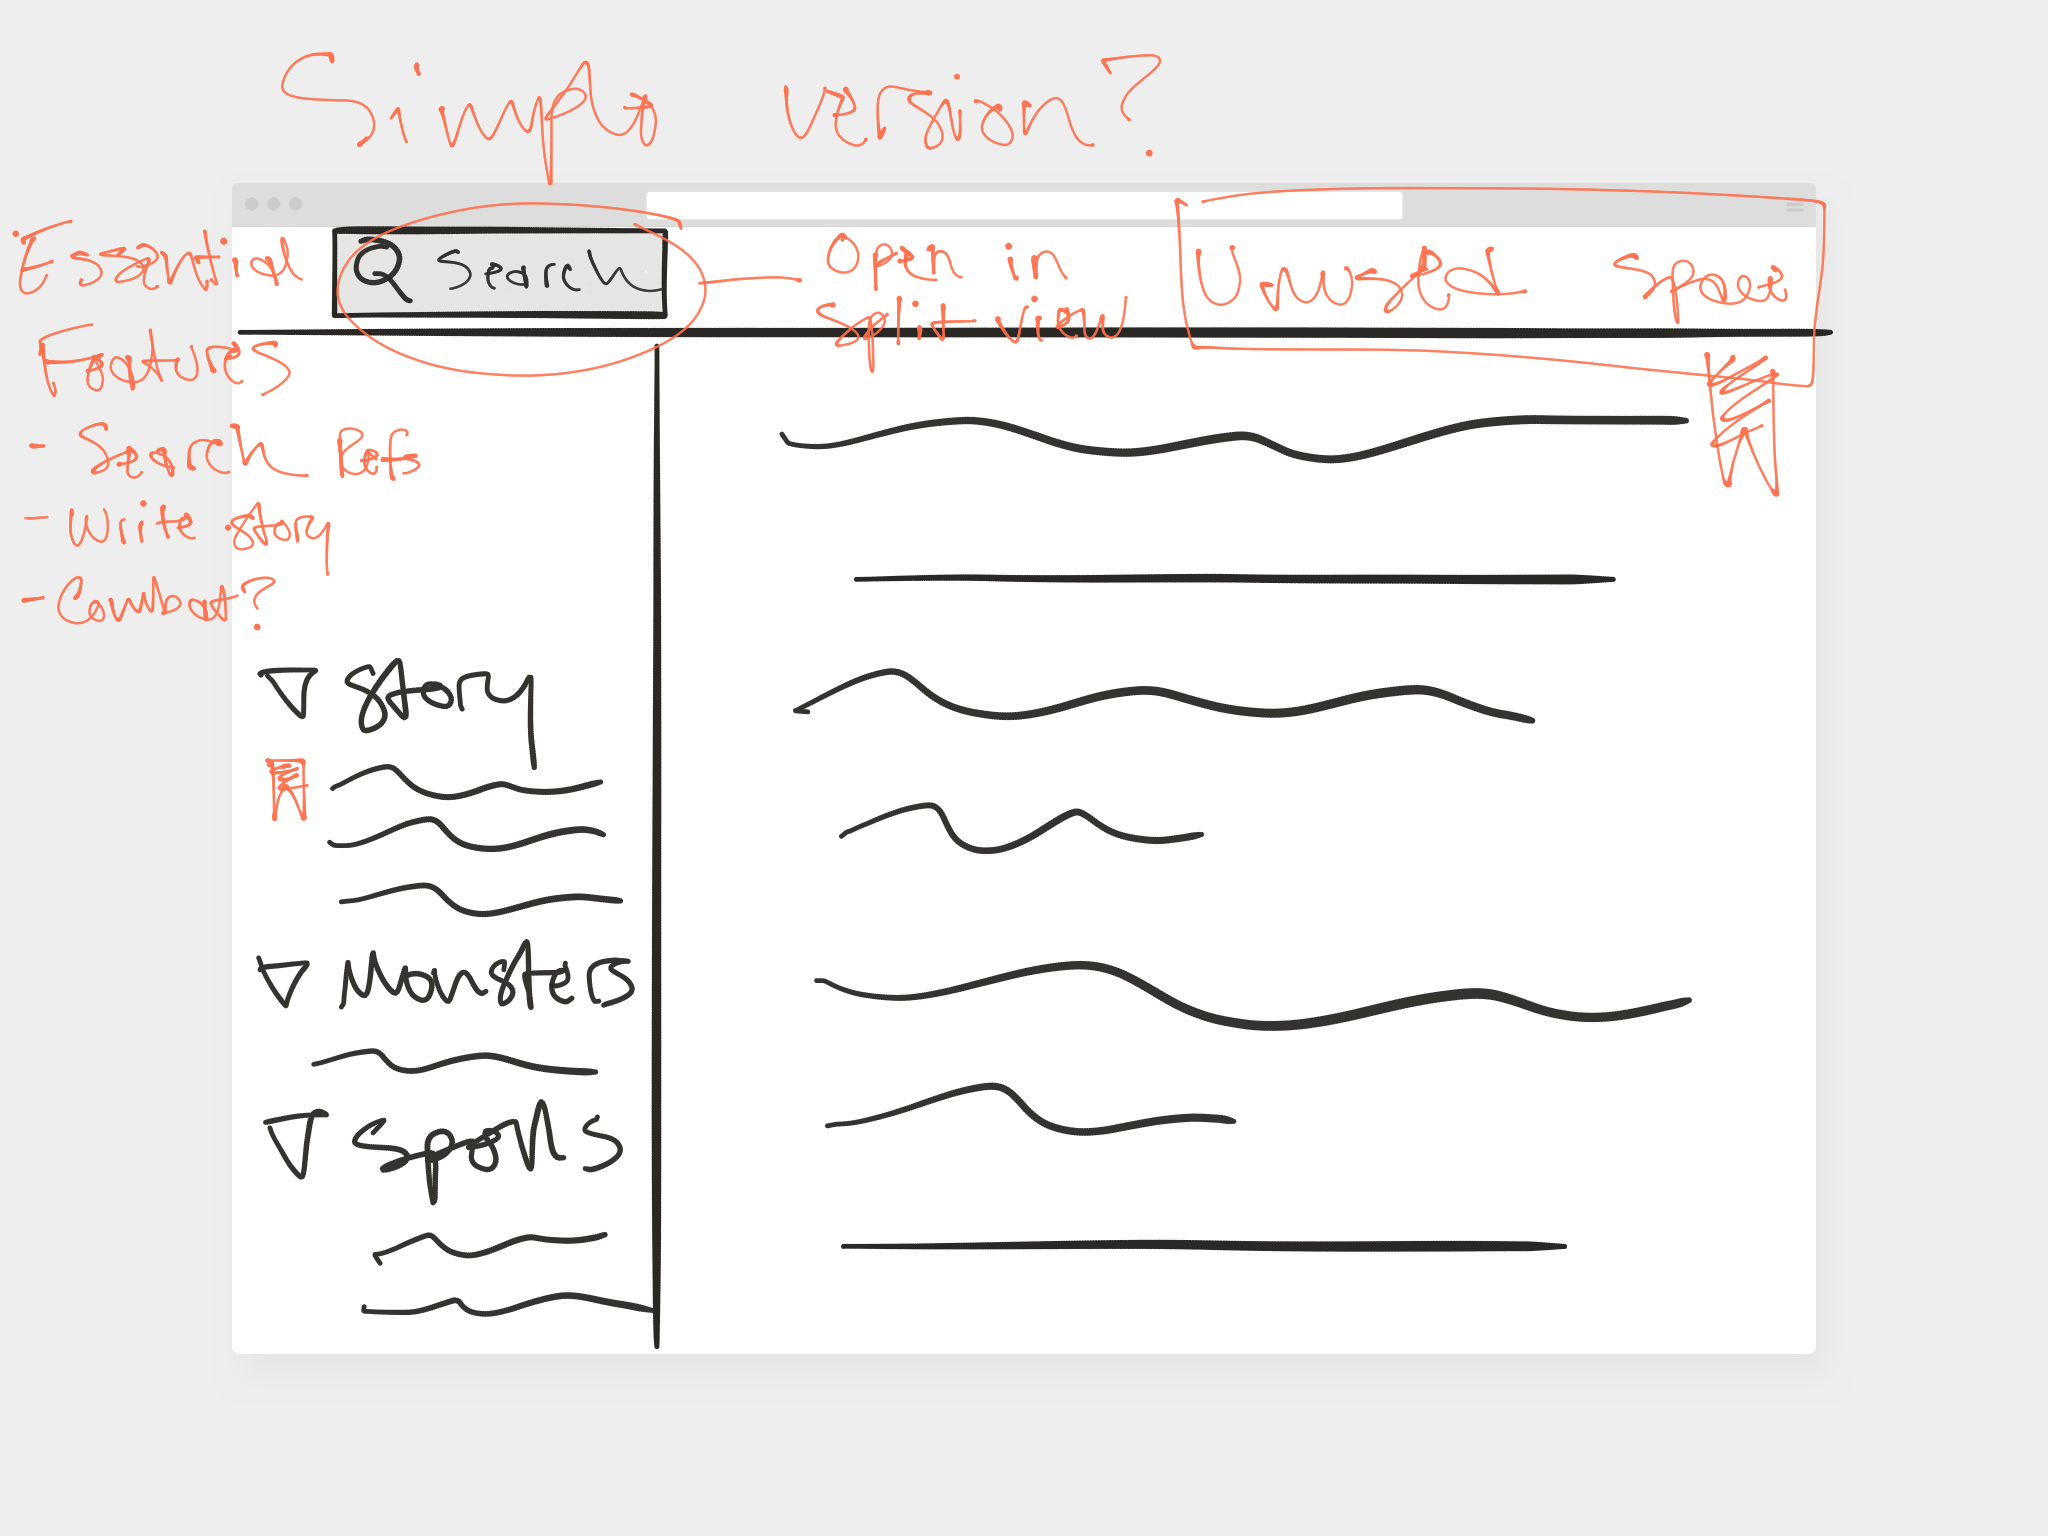 Simple version?
Essential
Features
- Search Refs
- Write story
- Combat?
Search
Open in
split view
Unused space
Story
Monsters
Spells